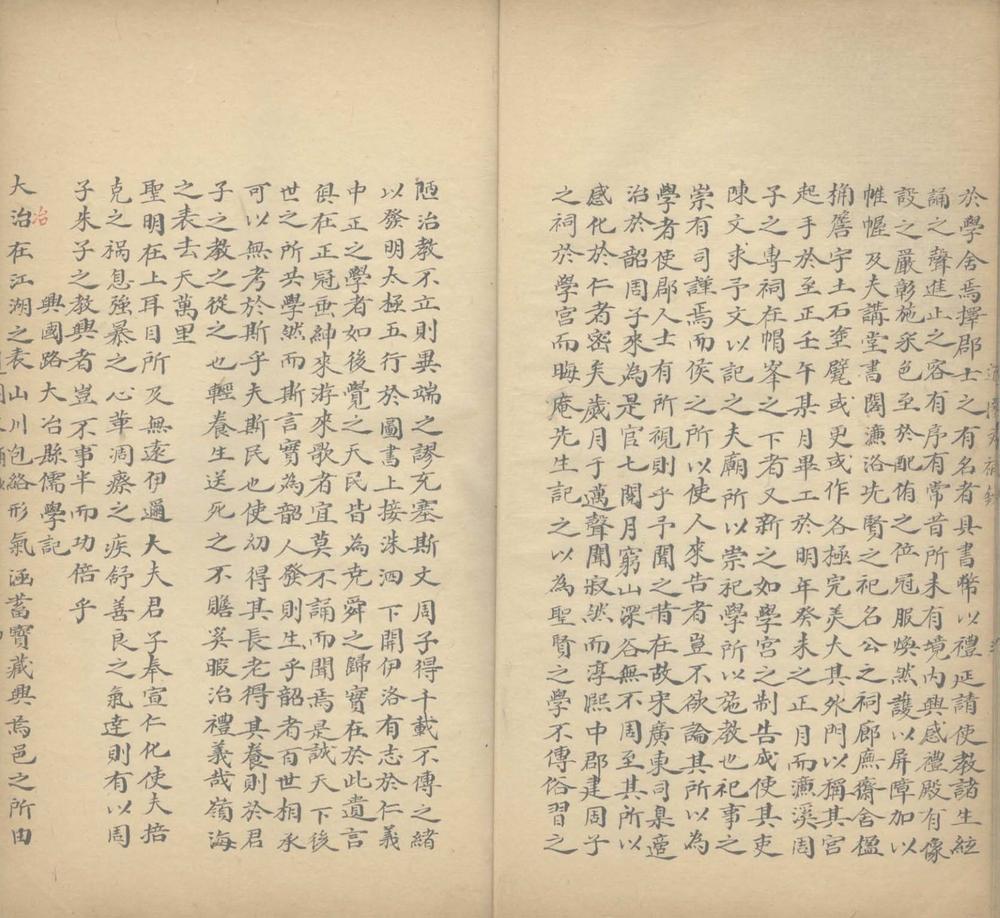 於學舍焉擇郡士之有名者具書幣以禮延請使教諸生絃
誦之聲進止之容有序有常昔所未有境內興感禮殿有像
設之嚴彰施采色至於配侑之位冠服煥然護以屏障加以
帷幄及夫講堂書閣濂洛先賢之祀名公之祠廊廡齋舍楹
桷簷宇土石塗甓或更或作各極完美大其外門以稱其宮
起手於至正壬午某月畢工於明年癸未之正月而濂溪周
子之專祠在帽峯之下者又新之如學宮之制告成使其吏
陳文求予文以記之夫廟所以崇祀學所以施教也祀事之
崇有司謹焉而侯之所以使人來告者豈不欲論其所以為
學者使郡人士有所視則乎予聞之昔在故宋廣東司臬適
治於韶周子來為是官七閱月窮山深谷無不周至其所以
感化於仁者密矣歲月于邁聲聞寂然而淳熙中郡建周子
之祠於學宮而晦庵先生記之以為聖賢之學不傳俗習之
陋治教不立則異端之謬充塞斯文周子得千載不傳之緒
以發明太極五行於圖書上接洙泗下開伊洛有志於仁義
中正之學者如後覺之天民皆為堯舜之歸實在於此遺言
俱在正冠垂紳來游來歌者宜莫不誦而聞焉是誠天下後
世之所共學然而斯言實為韶人發則生乎韶者百世相承
可以無考於斯乎夫斯民也使幼得其長老得其養則於君
子之教之從之也輕養生送死之不贍奚暇治禮義哉嶺海
之表去天萬里
聖明在上耳目所及無遠伊邇大夫君子奉宣仁化使夫掊
克之禍息強暴之心革凋瘵之疾舒善良之氣達則有以周
子朱子之教興者豈不事半而功倍乎
興國路大冶縣儒學記
大治在江湖之表山川包絡形氣涵蓄寶藏興焉邑之所由
冶